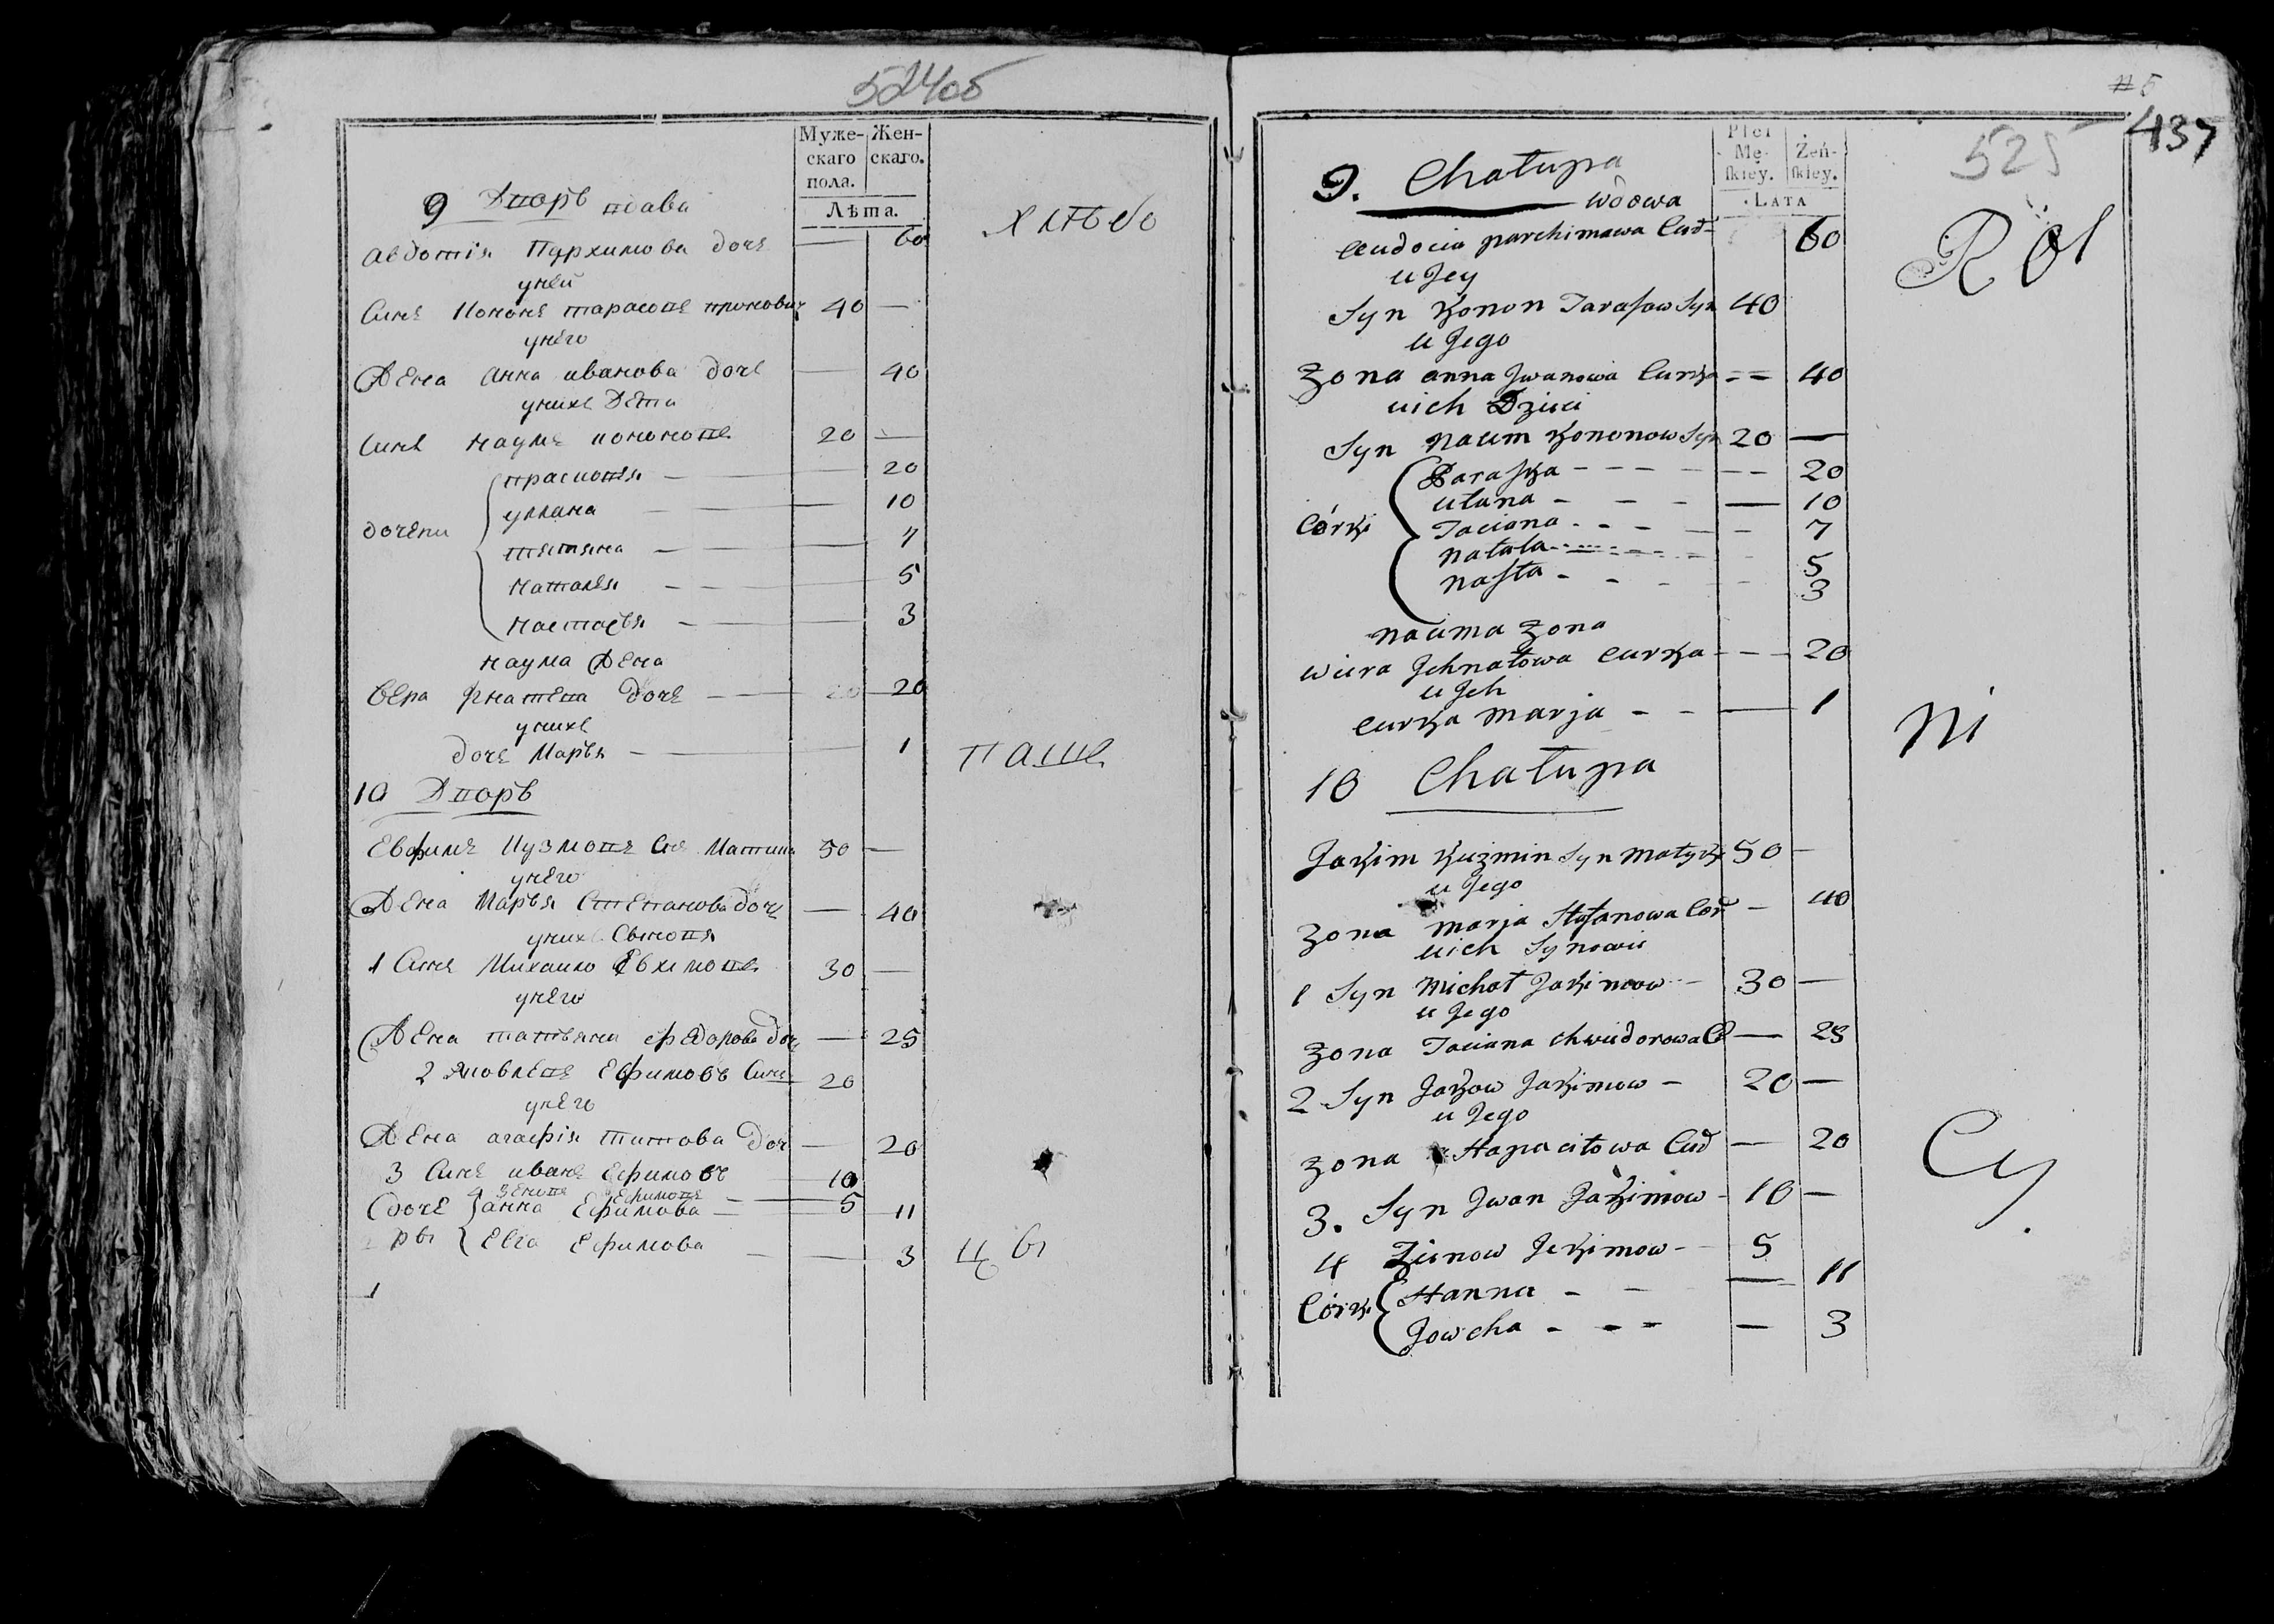 524об
Муже- Жен-
скаго скаго.
пола.
Лѣта.
9 Дворъ вдова
хлѣбо
Авдотія Пархимова дочь — 60
уней
Синъ Кононъ тарасовъ 40 —
унего
Жена Анна иванова дочь — 40
унихъ Дети
Синъ Наумъ кононовъ 20 —
прасковя — 20
уляна — 10
дочери
татяна — 7
Наталя — 5
Настасъя — 3
Наума Жена
Вера Гнатева дочь — 20
унихъ
дочь Маръя — 1
паше
10 Дворъ
Евфимъ Кузмовъ Снъ 50 —
унего
Жена Маръя Степанова дочь — 40
унихъ Сыновя
1 Синъ Михаило Евхимовъ 30 —
унего
Жена татъяна федорова доч — 25
2 Яковлевъ Ефимовъ Синъ 20
унего
Жена агафія Титова доч — 20
3 Синъ иванъ Ефимовъ 10
4 Зеновъ Ефимовъ 5
дочъ анна Ефимова — 11
Евга Ефимова — 3
цы
# 5
437
525
Płci
Mę- Żeń-
skiey. skiey.
LATA
9. Chałupa
wdowa
Rol
Eudocia parchimawa Cud- 60
u Jey
Syn Konon Tarasow Syn 40
u Jego
Zona anna Jwanowa Curka -- 40
uich Dzieci
Syn Naum Kononow Syn 20 —
Paraska - - - - - - 20
Ulana - - - — 10
Córki
Taciana - - - - - 7
Natala - - - 5
Nasta - - - - 3
Nauma Zona
Wiera Jehnatowa Curka - - - 20
u Jch
Curka Marja - - — 1
ni
10 Chałupa
Jakim Kuzmin Syn Matyk 50 —
u Jego
Zona Marja Stefanowa Cor - 40
uich Synowie
1 Syn Michał Jakimow - 30 —
u Jego
Zona Taciana Chwiedorowa C — 25
2 Syn Jakow Jakimow - 20 —
u Jego
Zona Hapacitowa Cud — 20
Cy
3. Syn Jwan Jakimow - 10 —
4 Zienow Jekimow - 5
Córki Hanna - - — 11
Jowcha - - - — 3